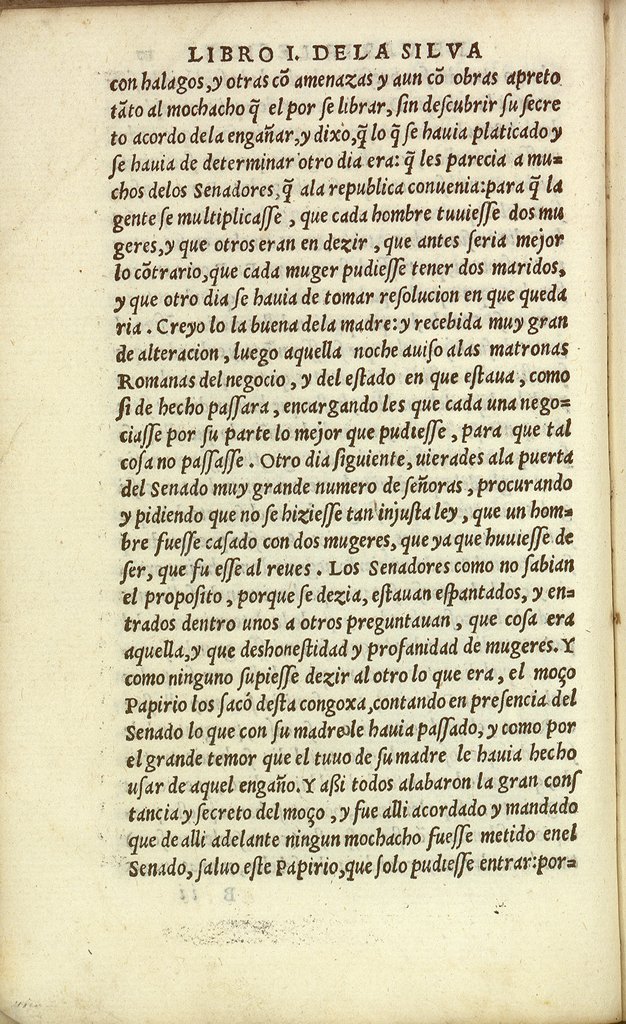 LIBRO I. DE LA SILVA
con halagos, y otras cõ amenazas y aun cõ obras apreto
tãto al mochacho q̃ el por ſe librar, ſin deſcubrir ſu ſecre
to acordo dela engañar, y dixo, q̃ lo q̃ ſe hauia platicado y
ſe hauia de determinar otro dia era: q̃ les parecia a mu=
chos delos Senadores, q̃ ala republica conuenia: para q̃ la
gente ſe multiplicaſſe, que cada hombre tuuieſſe dos mu
geres, y que otros eran en dezir, que antes ſeria mejor
lo cõtrario, que cada muger pudieſſe tener dos maridos,
y que otro dia ſe hauia de tomar reſolucion en que queda
ria. Creyo lo la buena dela madre: y recebida muy gran
de alteracion, luego aquella noche auiſo alas matronas
Romanas del negocio, y del eſtado en que eſtaua, como
ſi de hecho paſſara, encargando les que cada una nego=
ciaſſe por ſu parte lo mejor que pudieſſe, para que tal
coſa no paſſaſſe. Otro dia ſiguiente, uierades ala puerta
del Senado muy grande numero de ſeñoras, procurando
y pidiendo que no ſe hizieſſe tan injuſta ley, que un hom=
bre fueſſe caſado con dos mugeres, que ya que huuieſſe de
ſer, que fu eſſe al reues. Los Senadores como no ſabian
el propoſito, porque ſe dezia, eſtauan eſpantados, y en=
trados dentro unos a otros preguntauan, que coſa era
aquella, y que deshoneſtidad y profanidad de mugeres. Y
como ninguno ſupieſſe dezir al otro lo que era, el moço
Papirio los ſacó deſta congoxa, contando en preſencia del
Senado lo que con ſu madre le hauia paſſado, y como por
el grande temor que el tuuo de ſu madre le hauia hecho
uſar de aquel engaño. Y aßi todos alabaron la gran conſ
tancia y ſecreto del moço, y fue alli acordado y mandado
que de alli adelante ningun mochacho fueſſe metido enel
Senado, ſaluo eſte Papirio, que ſolo pudieſſe entrar: por=